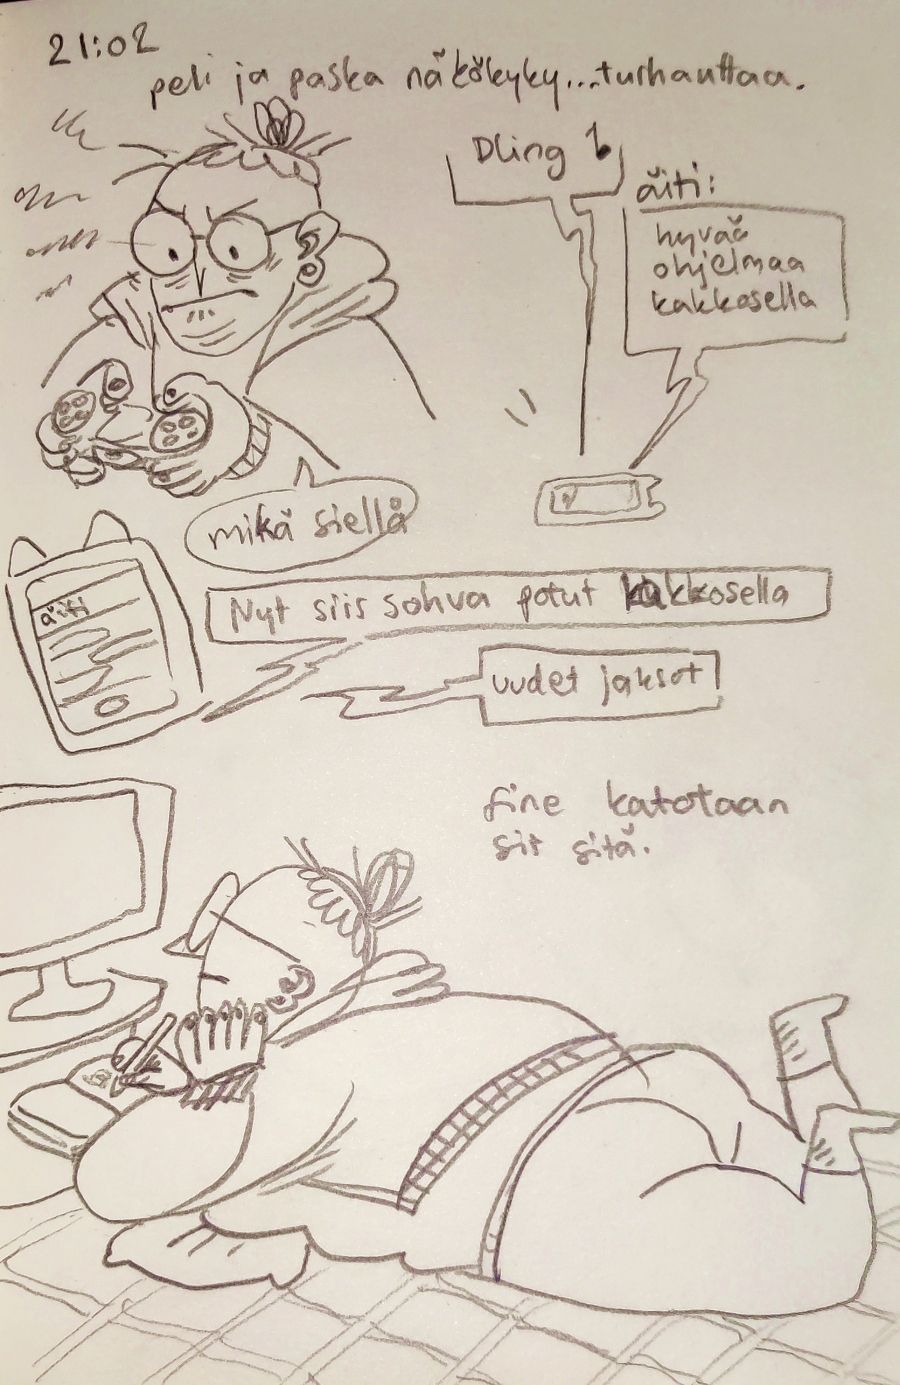 21:02
peli ja paska näkökyky...turhauttaa.
Dling
äiti:
hyvää
ohjelmaa
kakkosella
mikä siellä
äiti
Nyt siis sohva potut kakkosella
uudet jaksot
fine katotaan
siis sitä.